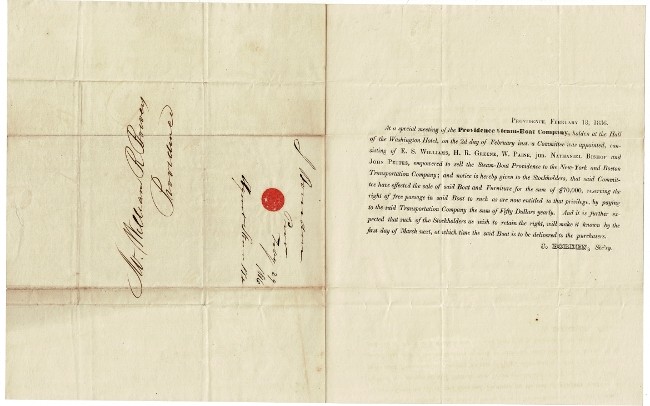 Mr. William R.
Providence
PROVIDENCE, FEBRUARY 13, 1836.
At a special meeting of the Providence Steam-Boat Company, holden at the Hall
of the Washington Hotel, on the 2d day of February inst. a Committee was appointed, con-
sisting of E. S. WILLIAMS, H. R. GREENE, W. PAINE, jun. NATHANIEL BISHOP and
JOHN PETTES, empowered to sell the Steam-Boat Providence to the New-York and Boston
Transportation Company; and notice is hereby given to the Stockholders, that said Commit-
tee have effected the sale of said Boat and Furniture for the sum of $70,000, reserving the
right of free passage in said Boat to such as are now entitled to that privilege, by paying
to the said Transportation Company the sum of Fifty Dollars yearly. And it is further ex-
pected that such of the Stockholders as wish to retain the right, will make it known by the
first day of March next, at which time the said Boat is to be delivered to the purchasers.
BORDEN, Sec'ry.